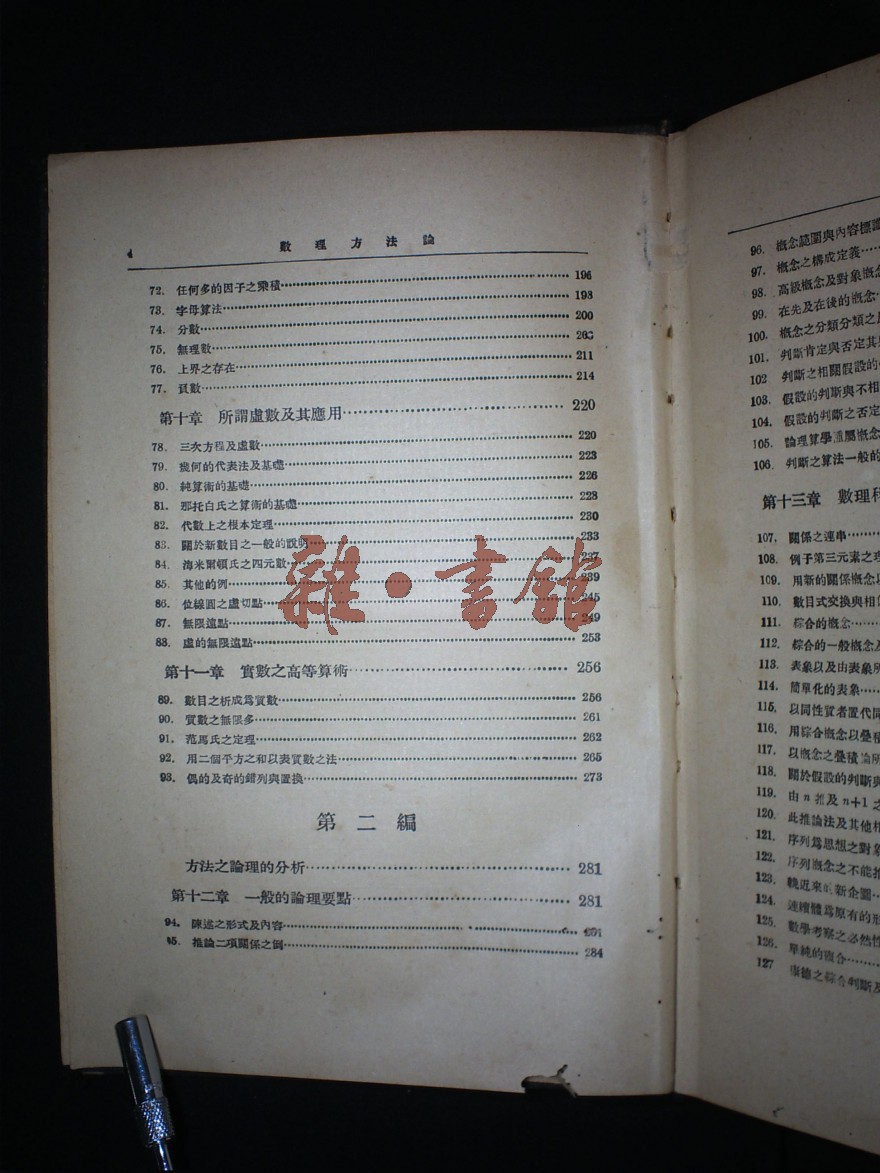 4 數理方法論
72. 任何多的因子之乘積 196
73. 字母算法 198
74. 分數 200
75. 無理數
76. 上界之存在 211
77. 負數 214
第十章 所謂虛數及其應用 220
78. 三次方程及虛數 220
79. 幾何的代表法及基礎 223
80. 純算術的基礎 226
81. 那托白氏之算術的基礎 228
82. 代數上之根本定理 230
83. 關於新數目之一般的說明 233
84. 海米爾頓氏之四元數 237
85. 其他的例 239
86. 位線圓之虛切點 245
87. 無限遠點 249
88. 虛的無限遠點 253
第十一章 實數之高等算術 256
89. 數目之析成為質數 256
90. 質數之無限多 261
91. 范馬氏之定理 262
92. 用二個平方之和以表質數之法 265
93. 偶的及奇的錯列與置換 273
第二編
方法之論理的分析 281
第十二章 一般的論理要點 281
94. 陳述之形式及內容
95. 推論二項關係之例 284
雜·書館
96. 概念範圍與內容標識
97. 概念之構成定義
98. 高級概念及對象概念
99. 在先及在後的概念
100. 概念之分類分類之
101. 判斷肯定與否定其
102 判斷之相關假設的
103. 假設的判斷與不相
104. 假設的判斷之否定
105. 論理算學隸屬概念
106. 判斷之算法一般的
第十三章 數理科
107. 關係之連串
108. 例子第三元素之理
109. 用新的關係概念以
110. 數目式交換與相
111. 綜合的概念
112. 綜合的一般概念及
113. 表象以及由表象所
114. 簡單化的表象
115. 以同性質者置代同
116. 用綜合概念以疊積
117. 以概念之疊積論所
118. 關於假設的判斷與
119. 由 n 推及 n+1 之
120. 此推論法及其他相
121. 序列為思想之對象
122. 序列概念之不能推
123. 輓近來的新企圖
124. 連續體為原有的形
125. 數學考察之必然性
126. 單純的複合
127 康德之綜合判斷及